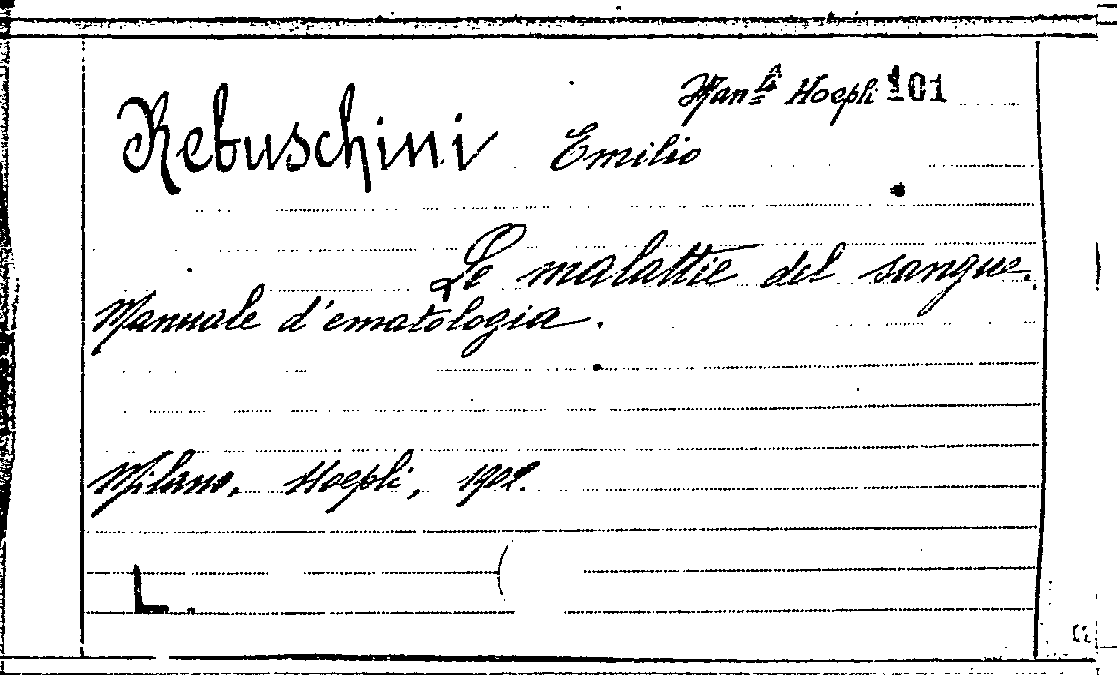 Man.li Hoepli 101
Rebuschini Emilio
Le malattie del sangue.
Manuale d'ematologia.
Milano, Hoepli, 1902.
L.